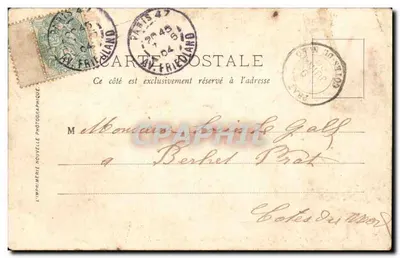 PARIS 47
AV. FRIEDLAND
PARIS 47
AV. FRIEDLAND
CARTE POSTALE
Ce côté est exclusivement réservé à l'adresse
M Monsieur Le Gall
a Berhet Prat
Cotes du Nord
L'IMPRIMERIE NOUVELLE PHOTOGRAPHIQUE